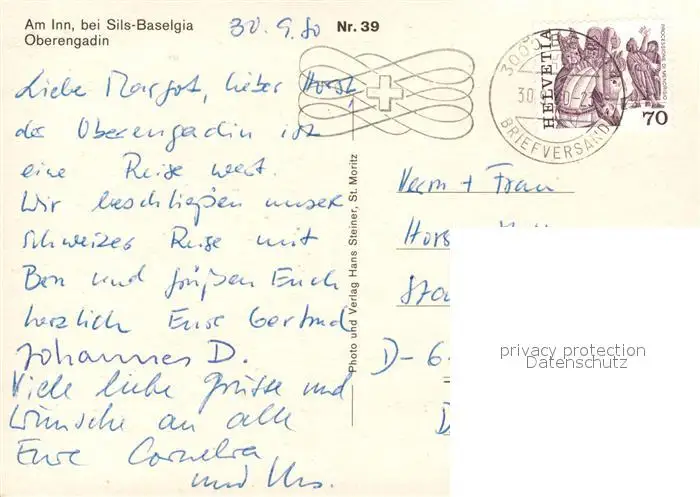 Am Inn, bei Sils-Baselgia
Oberengadin
30.9.80
Nr. 39
Liebe Margot, lieber Horst,
das Oberengadin ist
eine Reise wert.
Wir beschließen unsere
schweizer Reise mit
Bern und grüßen Euch
herzlich Eure Gertrud
Johannes D.
Viele liebe Grüsse und
Wünsche an alle
Eure Cornelia
und Urs.
Photo und Verlag Hans Steiner, St. Moritz
HELVETIA
PROCESSIONE DI MENDRISIO
70
3000
30.
BRIEFVERSAND
Herrn + Frau
Horst
D-6
privacy protection
Datenschutz